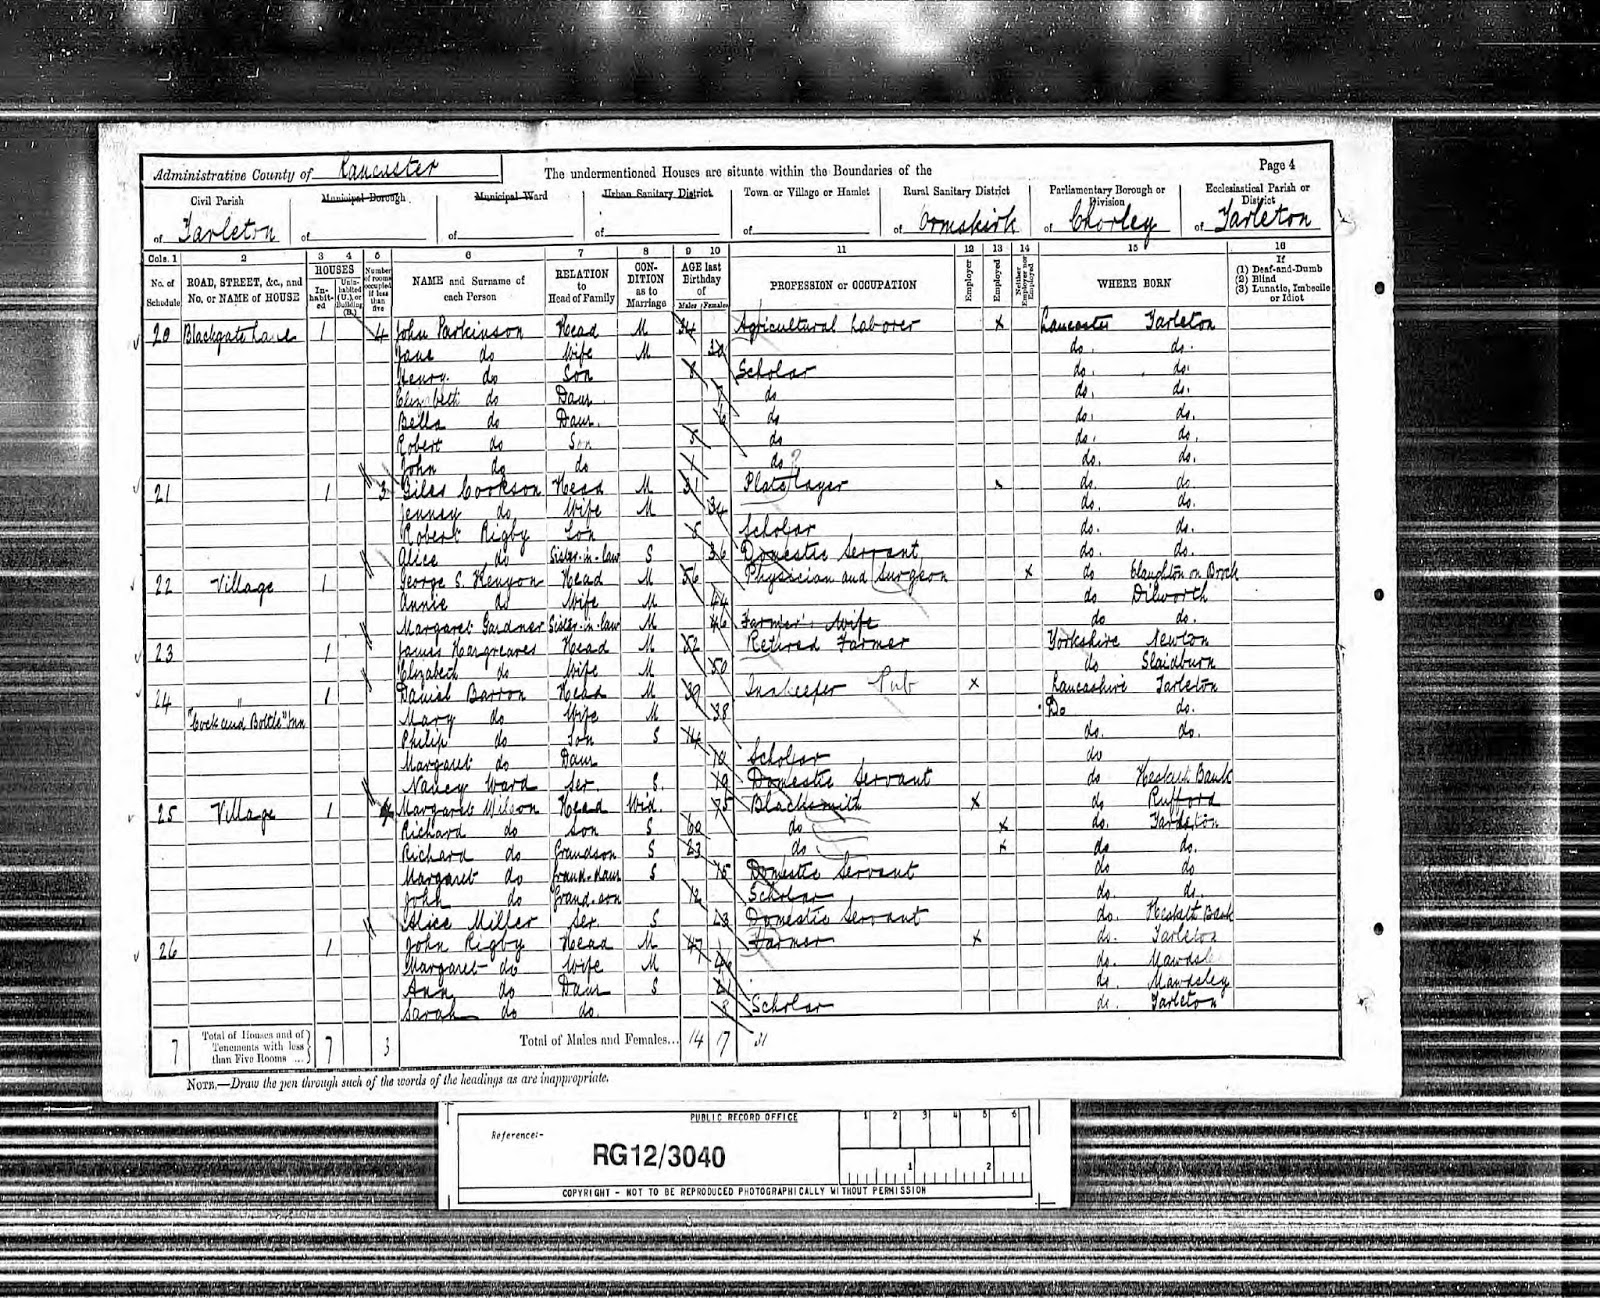 Administrative County of Lancaster The undermentioned Houses are situate within the Boundaries of the Page 4
Civil Parish Municipal Borough Municipal Ward Urban Sanitary District Town or Village or Hamlet Rural Sanitary District Parliamentary Borough or Division Ecclesiastical Parish or District
of Tarleton of of of of of Ormskirk of Chorley of Tarleton
Cols. 1 2 3 4 5 6 7 8 9 10 11 12 13 14 15 16
No. of Schedule ROAD, STREET, &c., and No. or NAME of HOUSE HOUSES In-habit-ed Unin-habited (U.), or Building (B.) Number of rooms occupied if less than five NAME and Surname of each Person RELATION to Head of Family CON-DITION as to Marriage AGE last Birthday of Males Females PROFESSION or OCCUPATION Employer Employed Neither Employer nor Employed WHERE BORN If (1) Deaf-and-Dumb (2) Blind (3) Lunatic, Imbecile or Idiot
20 Blackgate Lane 1 4 John Parkinson Head M 34 Agricultural Laborer x Lancaster Tarleton
Jane do Wife M do. do.
Henry do Son 8 Scholar do. do.
Elizabeth do Daur 7 do do. do.
Bella do Daur. 6 do do. do.
Robert do Son 5 do do. do.
John do do do ? do. do.
21 1 3 Giles Cookson Head M 31 Plate layer x do. do.
Jenney do Wife M 34 do. do.
Robert Rigby Son 5 Scholar do. do.
Alice do Sister-in-law S 36 Domestic Servant do. do.
22 Village 1 George S. Kenyon Head M 56 Physician and Surgeon x do Claughton on Brock
Annie do Wife M 44 do Dilworth
Margaret Gardner Sister-in-law M 46 Farmer's Wife do do.
23 1 James Hargreaves Head M 52 Retired Farmer Yorkshire Newton
Elizabeth do Wife M 50 do Slaidburn
24 " 1 Daniel Barron Head M 39 Innkeeper Pub x Lancashire Tarleton
"Cock and Bottle" Inn Mary do Wife M 38 Do do.
Philip do Son S 14 do. do.
Margaret do Daur 10 Scholar do
Nancy Ward Ser. S. 19 Domestic Servant do Hesketh Bank
25 Village 1 4 Margaret Wilson Head Wid. 75 Blacksmith x do Rufford
Richard do son S do x do. Tarleton
Richard do Grandson S 23 do x do do.
Margaret do Grand-daur S 15 Domestic Servant do do
John do Grand-son 12 Scholar do do.
Alice Miller Ser. S 23 Domestic Servant do. Heskth Bank
26 1 John Rigby Head M 47 Farmer x do. Tarleton
Margaret do Wife M 46 do.
Ann do Daur S 21 do. Mawdsley
Sarah do do. 8 Scholar do. Tarleton
7 Total of Houses and of Tenements with less than Five Rooms ... 7 3 Total of Males and Females... 14 17 31
NOTE.—Draw the pen through such of the words of the headings as are inappropriate.
PUBLIC RECORD OFFICE 1 2 3 4 5 6
Reference:-
RG12/3040
1 2
COPYRIGHT - NOT TO BE REPRODUCED PHOTOGRAPHICALLY WITHOUT PERMISSION